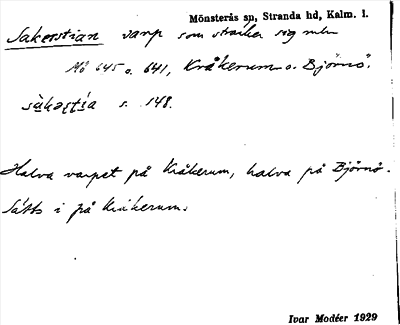 Mönsterås sn, Stranda hd, Kalm. l.
Sakerstian varp som sträcker sig mellan
Mö 645 o. 641, Kråkerum o. Björnö.
s. 148.
Halva varpet på Kråkerum, halva på Björnö.
Sätts i på Kråkerum.
Ivar Modéer 1929